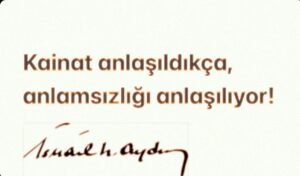 Kainat anlaşıldıkça,
anlamsızlığı anlaşılıyor!
İsmail H. Aydın